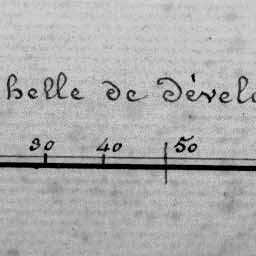 helle de Dével
30 40 50